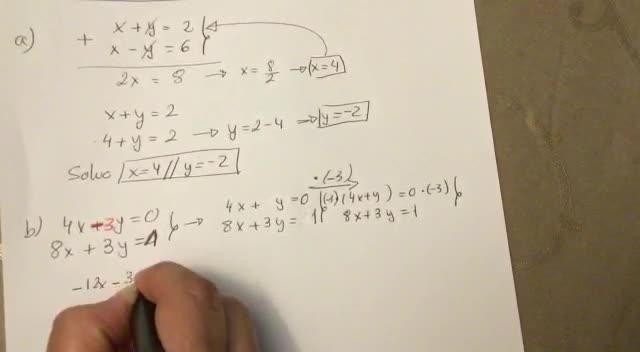 a) + x + y = 2
x - y = 6
2x = 8 → x = 8/2 → x = 4
x + y = 2
4 + y = 2 → y = 2 - 4 → y = -2
Soluc x = 4 // y = -2
·(-3)
b) 4x + 3y = 0 → 4x + y = 0 (-3)(4x + y) = 0·(-3)
8x + 3y = 1 8x + 3y = 1 8x + 3y = 1
-12x - 3